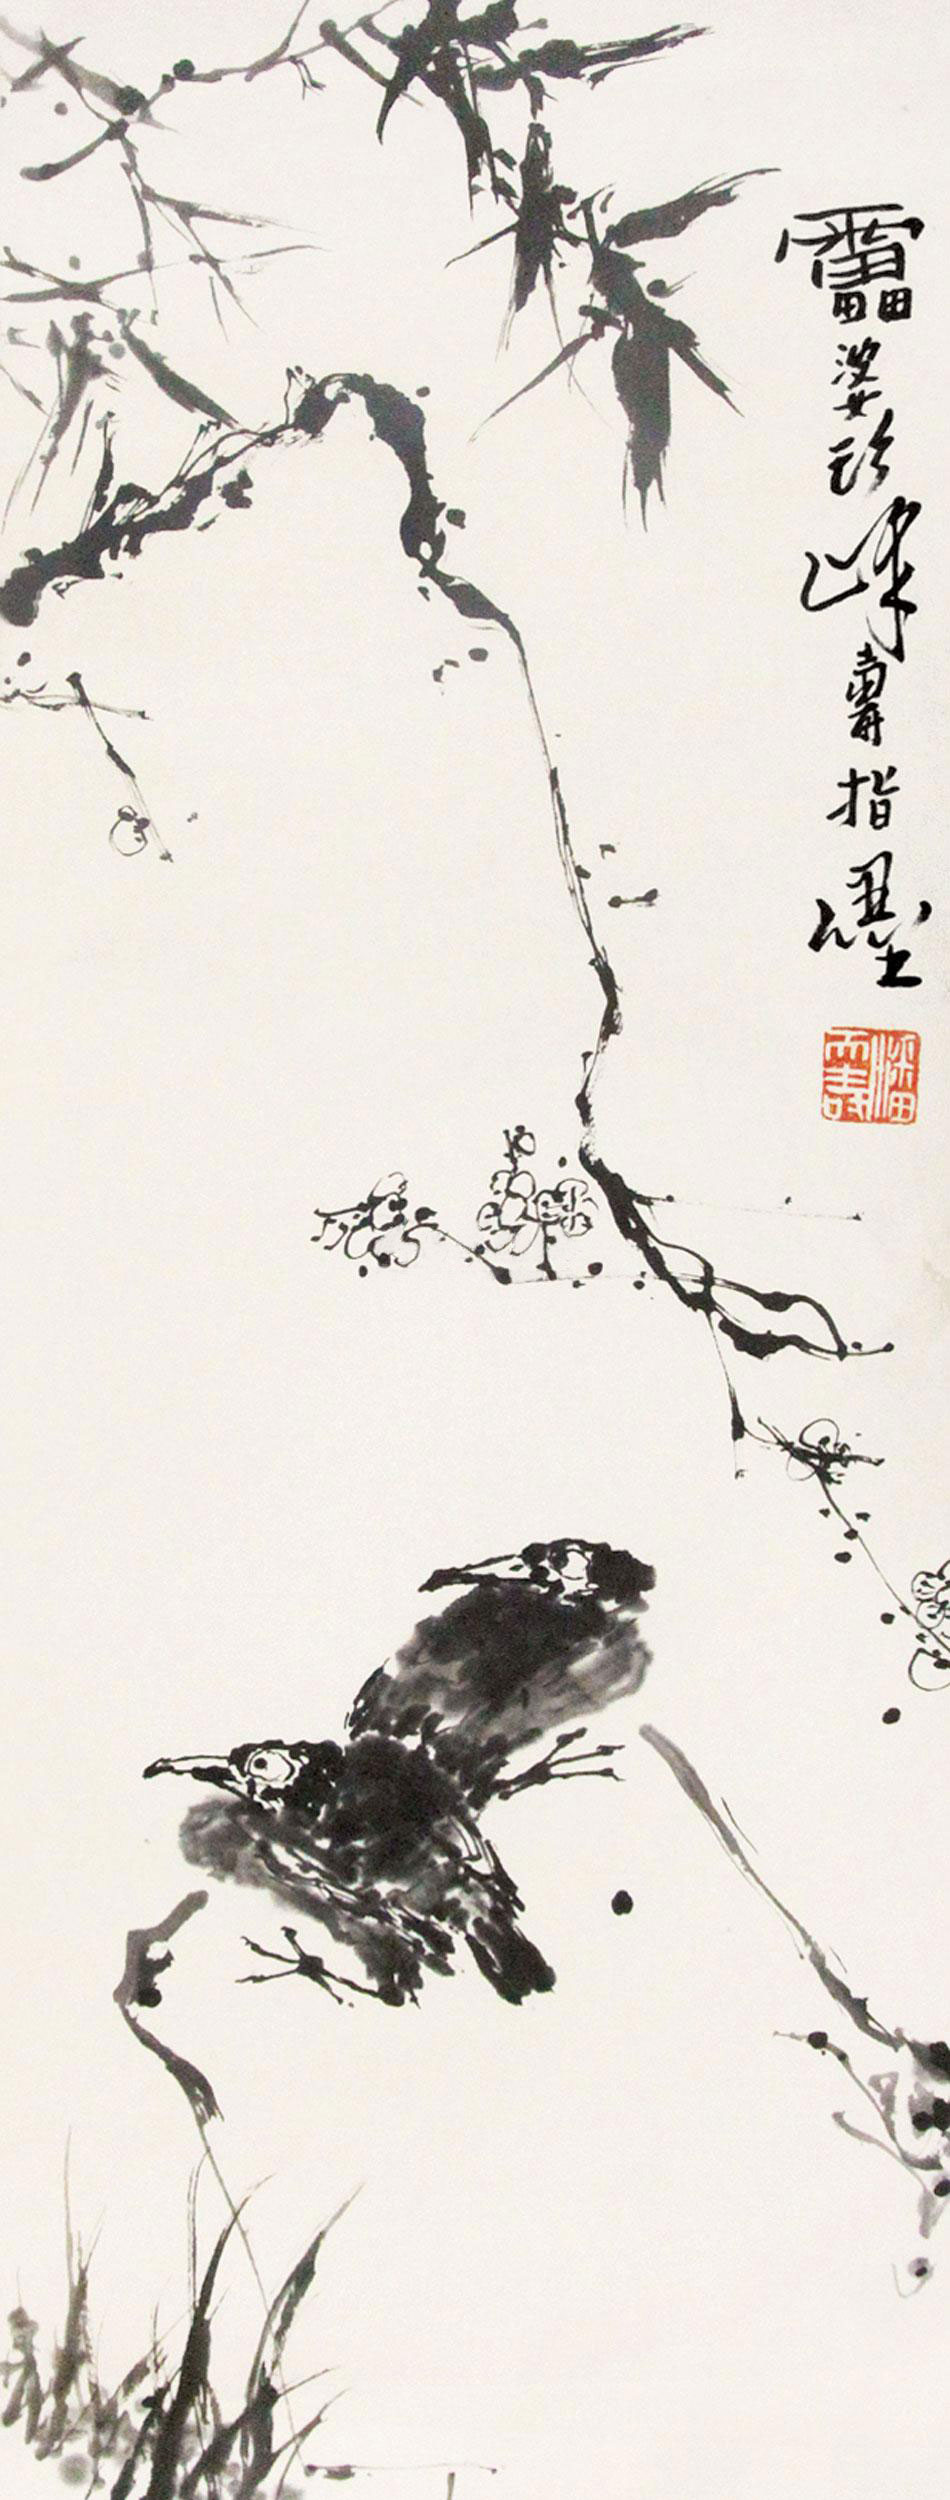 雷婆頭峰壽指墨
潘天壽